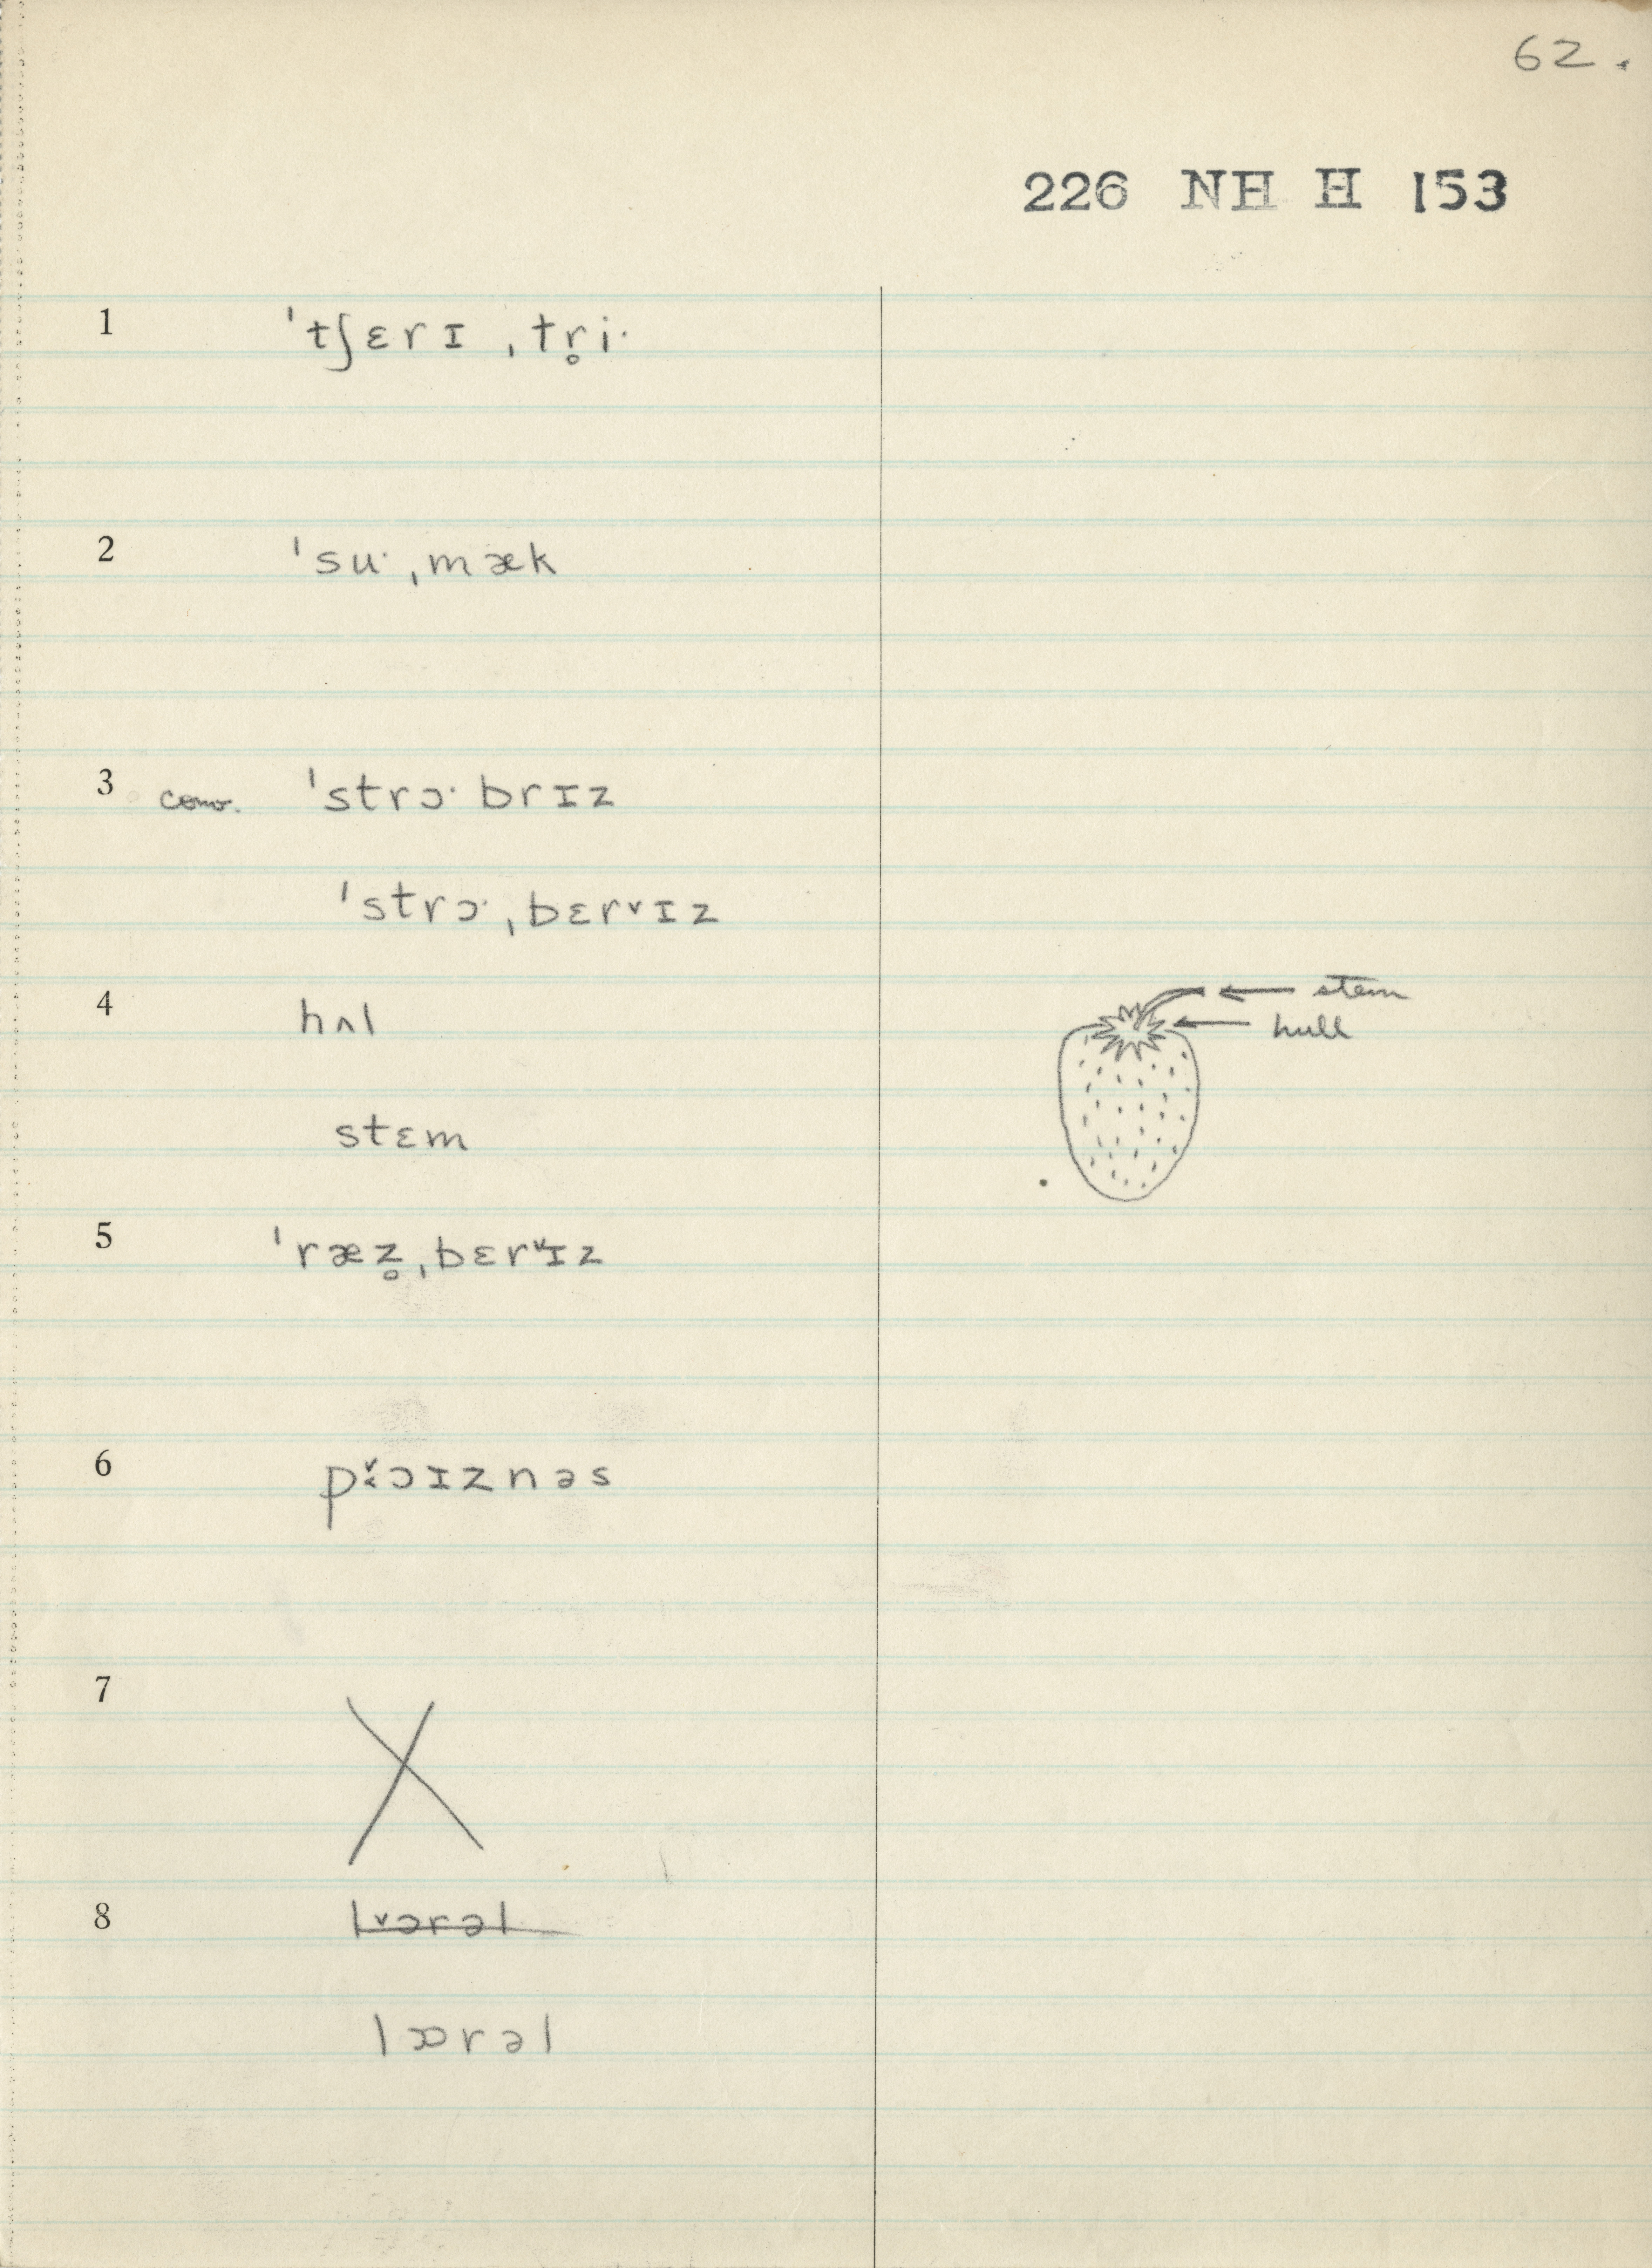 62.
226 NH H 153
1 ˈtʃɛrɪ ˌtr̥iˑ
2 ˈsuˑˌmæk
3 conv. ˈstrɔˑbrɪz
ˈstrɔˑˌbɛrᵛɪz
4 hʌl
stem
hull
stɛm
5 ˈræz̥ˌbɛrᵛɪz
6 pɔɪznəs
7 X
8 l˅ərəl
lɒrəl